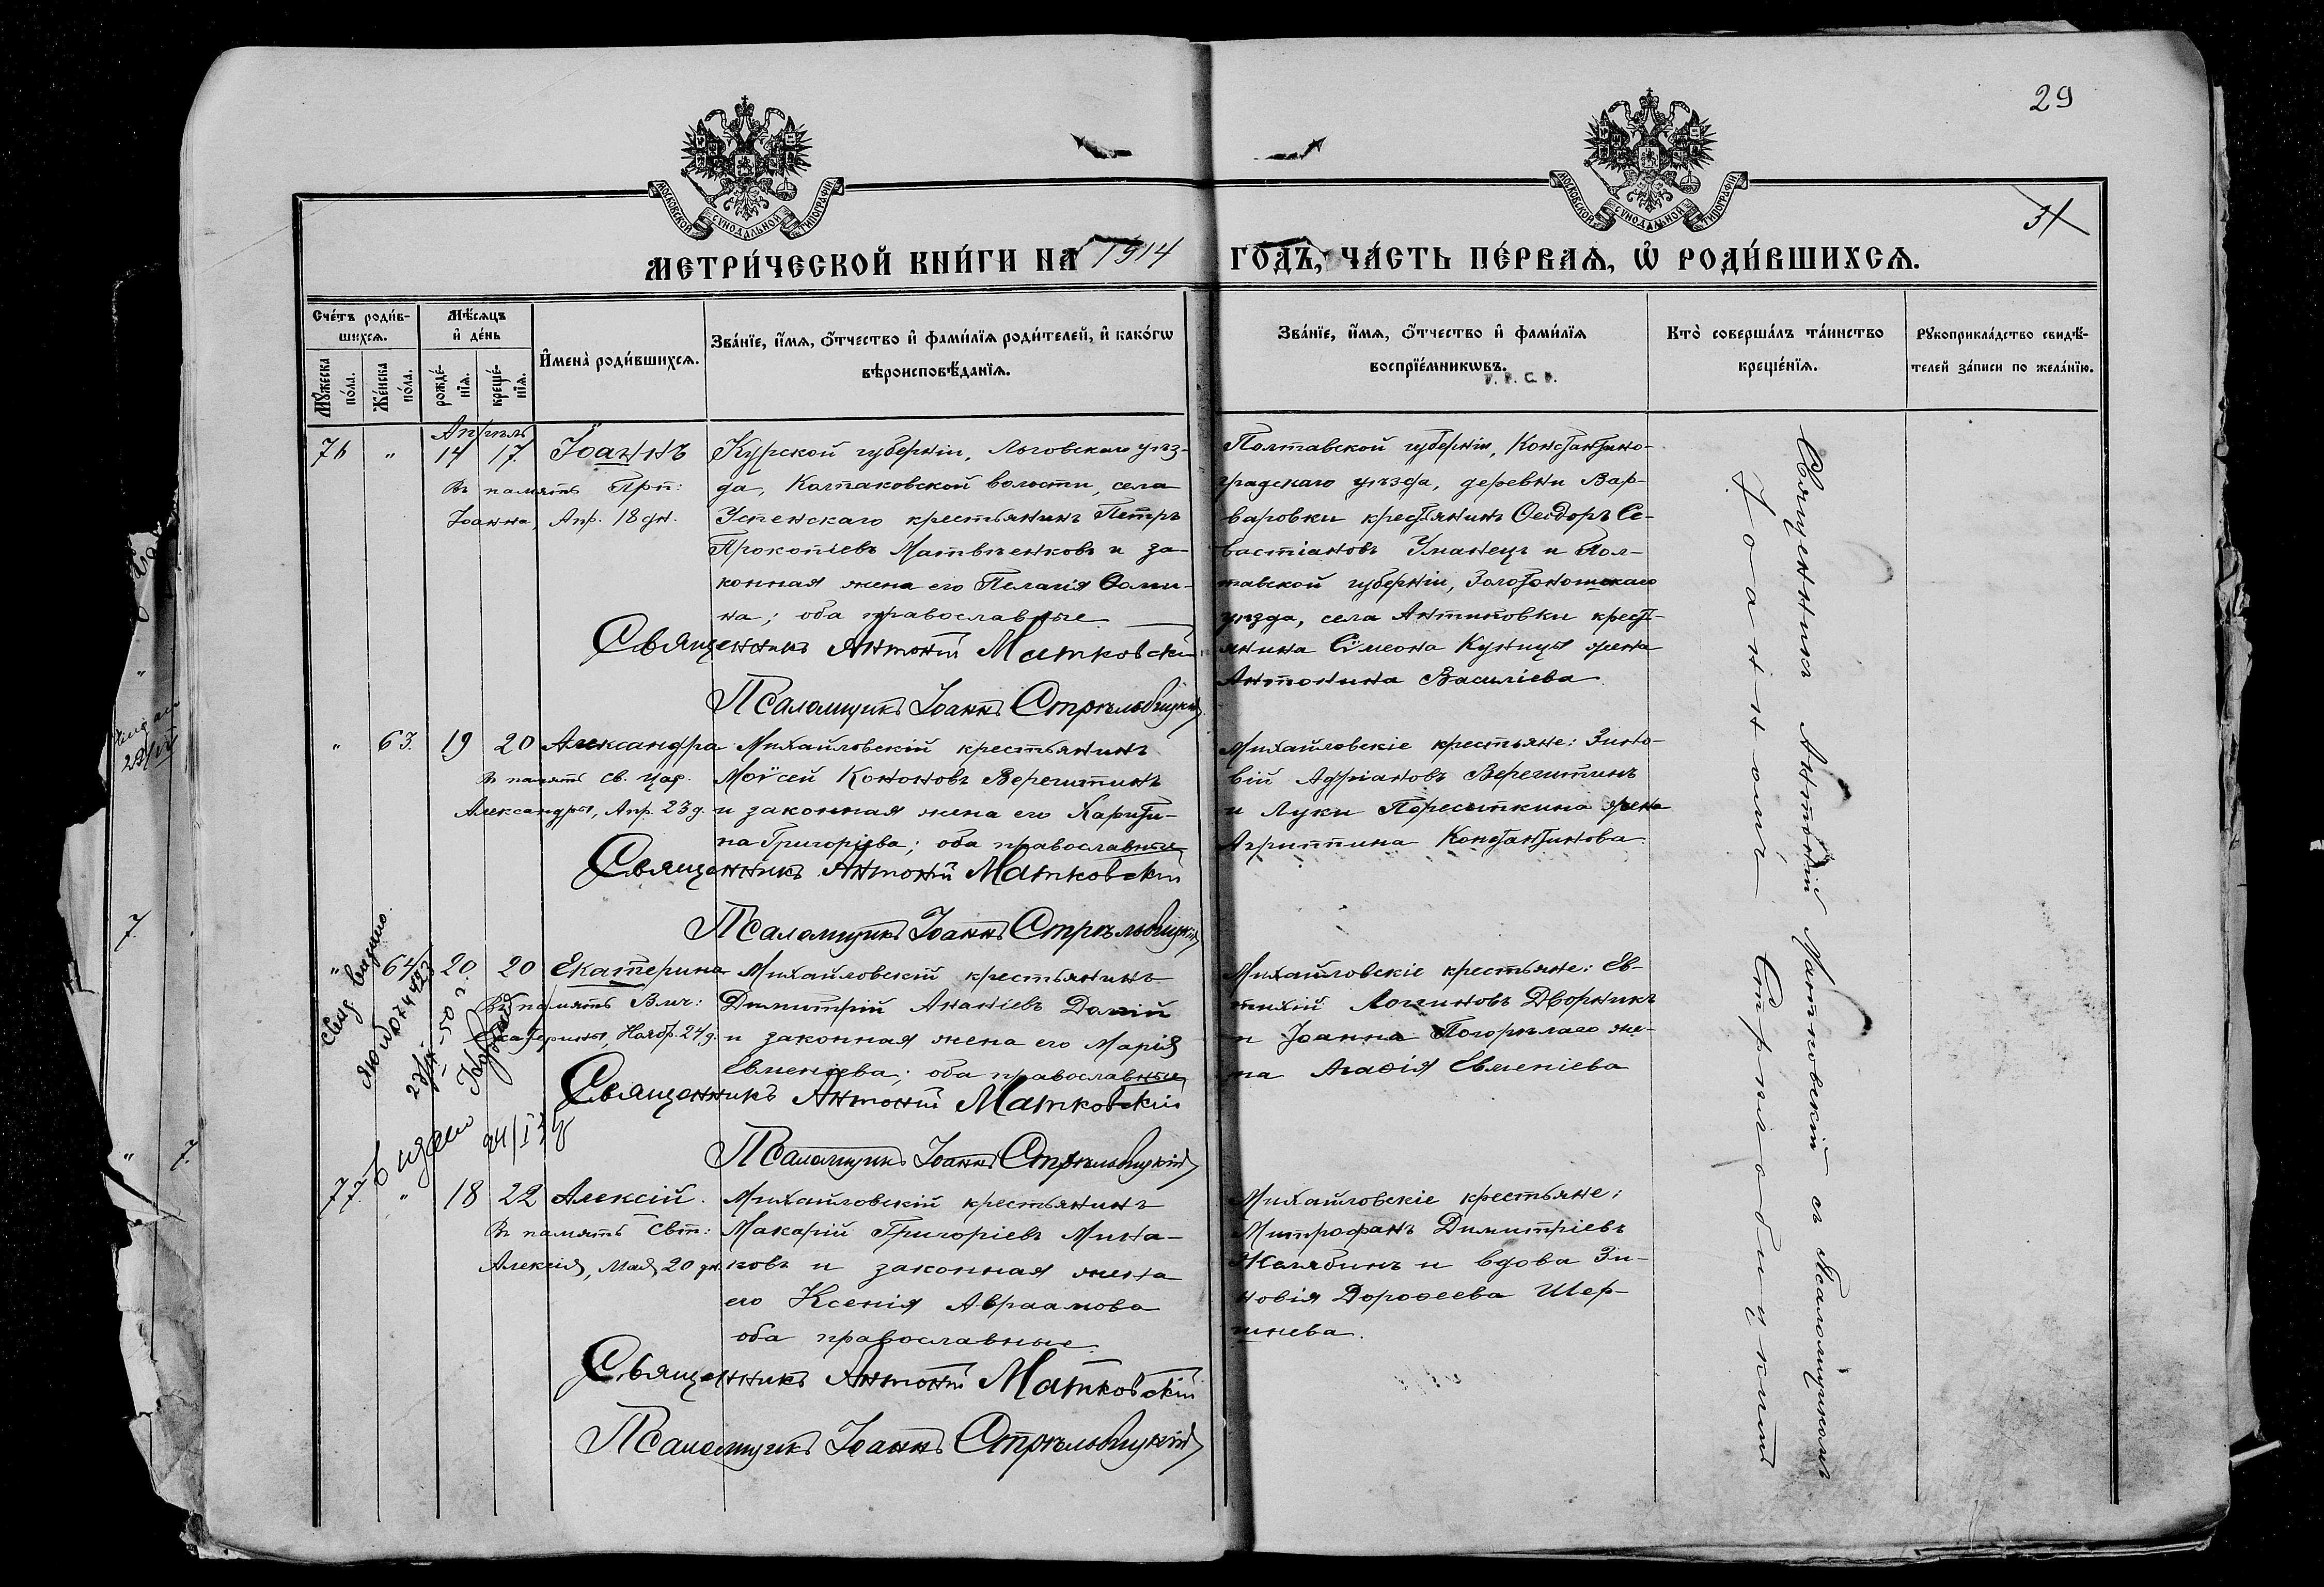 29
31
МОСКОВСКОЙ СѴНОДАЛЬНОЙ ТИПОГРАФІИ
МОСКОВСКОЙ СѴНОДАЛЬНОЙ ТИПОГРАФІИ
МЕТРИ́ЧЕСКОЙ КНИ́ГИ НА 1914 ГО́ДЪ, ЧА́СТЬ ПЕ́РВАѦ, Ѡ҆ РОДИ́ВШИХСѦ.
Сче́тъ роди́в-
шихсѧ.
Мꙋ́жеска по́ла.
Же́нска по́ла.
Мѣ́сѧцъ
и҆ де́нь
рожде́-
нїѧ.
креще́-
нїѧ.
И҆мена̀ роди́вшихсѧ.
Зва́нїе, и҆́мѧ, ѻ҆́тчество и҆ фами́лїѧ роди́телей, и҆ како́гѡ
вѣроисповѣ́данїѧ.
Зва́нїе, и҆́мѧ, ѻ҆́тчество и҆ фами́лїѧ
воспрїе́мникѡвъ.
Кто̀ соверша́лъ та́инство
креще́нїѧ.
Рꙋкоприкла́дство свидѣ́-
телей за́писи по жела́нїю.
Апрѣль
76 " 14 17. Іоаннъ
Въ память Прп:
Іоанна, Апр. 18 дн.
Курской губерніи, Льговскаго уѣз-
да, Колпаковской волости, села
Успенскаго крестьянинъ Петръ
Прокопіевъ Матвѣенковъ и за-
конная жена его Пелагія Ѳоми-
на; оба православные
Священникъ Антоній Матковскій
Псаломщикъ Іоаннъ Стрѣльбицкій
Полтавской губерніи, Константино-
градскаго уѣзда, деревни Вар-
варовки крестьянинъ Ѳеодоръ Се-
вастіановъ Уманецъ и Пол-
тавской губерніи, Золотоношскаго
уѣзда, села Антиповки кресть-
янина Сѵмеона Куницы жена
Антонина Василіева.
" 63. 19 20 Александра
Въ память св. цар.
Александры, Апр. 23 д.
Михайловскій крестьянинъ
Моѵсей Кононовъ Верегитинъ
и законная жена его Харити-
на Григоріева; оба православные
Священникъ Антоній Матковскій
Псаломщикъ Іоаннъ Стрѣльбицкій
Михайловскіе крестьяне: Зино-
вій Адріановъ Верегитинъ
и Луки жена
Агриппина Константинова.
" 64 20 20 Екатерина
Въ память Вмч:
Екатерины, Нояб. 24 д.
Михайловскій крестьянинъ
Димитрій Ананіевъ
и законная жена его Марія
Евменіева; оба православные
Священникъ Антоній Матковскій
Псаломщикъ Іоаннъ Стрѣльбицкій
Михайловскіе крестьяне: Ев-
тихій Логиновъ Дворникъ
и Іоанна Погорѣлаго же-
на Агаѳія Евменіева
77. " 18 22 Алексій.
Въ память Свт:
Алексія, Мая 20 дн.
Михайловскій крестьянинъ
Макарій Григоріевъ Мина-
ковъ и законная жена
его Ксенія Авраамова
оба православные.
Священникъ Антоній Матковскій
Псаломщикъ Іоаннъ Стрѣльбицкій
Михайловскіе крестьяне:
Митрофанъ Димитріевъ
Желябинъ и вдова Зи-
новія Дороѳеева Шер-
шнева.
Священникъ Антоній Матковскій съ Псаломщикомъ
Іоанномъ Стрѣльбицкимъ